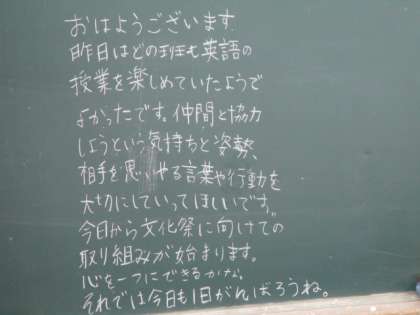 おはようございます。
昨日はどの班も英語の
授業を楽しめていたようで
よかったです。仲間と協力
しようという気持ちと姿勢、
相手を思いやる言葉や行動を
大切にしていってほしいです。
今日から文化祭に向けての
取り組みが始まります。
心を一つにできるかな。
それでは今日も1日がんばろうね。